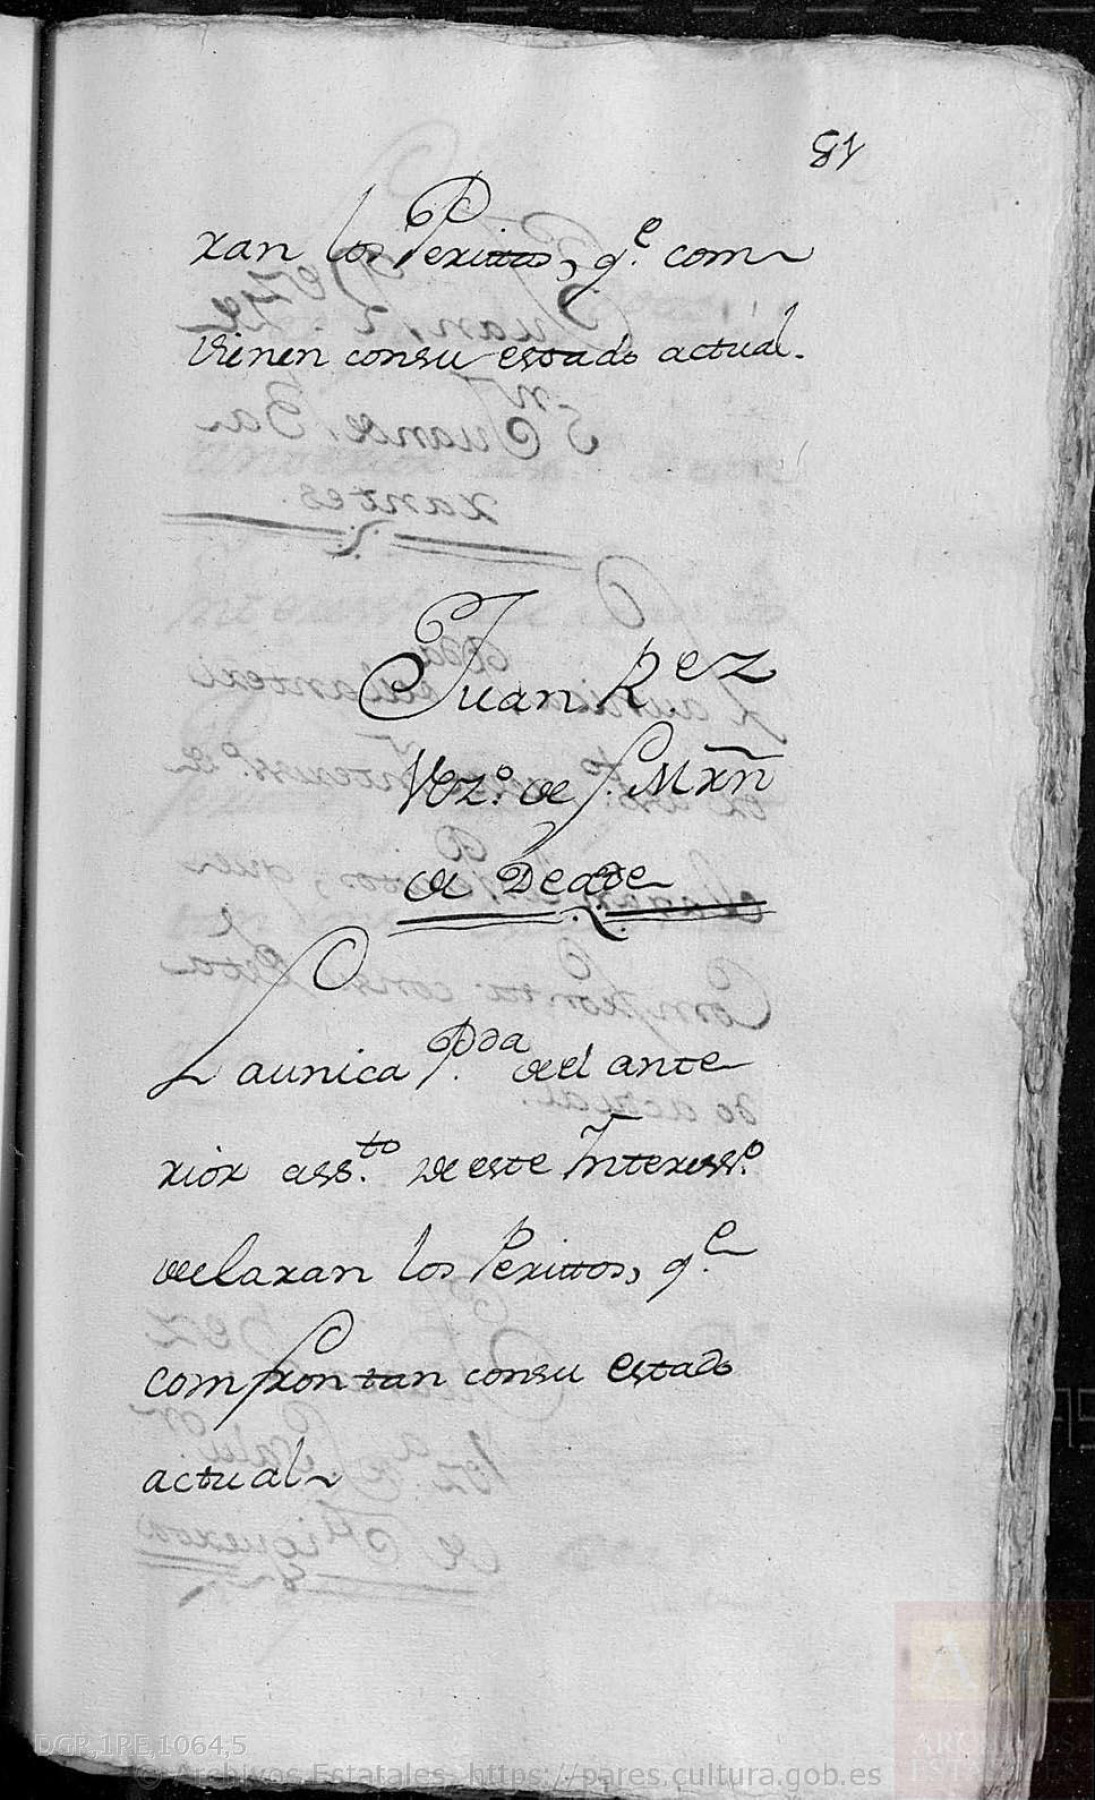 81
ran los Perittos, q.e com
vienen consu estado actual.
Juan R.ez
Vez.o de S. Mrñ
de Deade
La unica P.da del ante
rior ass.to de este Interess.o
declaran los Perittos, q.e
comfrontan consu estado
actual
DGP,1PE,1064,5
© Archivos Estatales, https://pares.cultura.gob.es